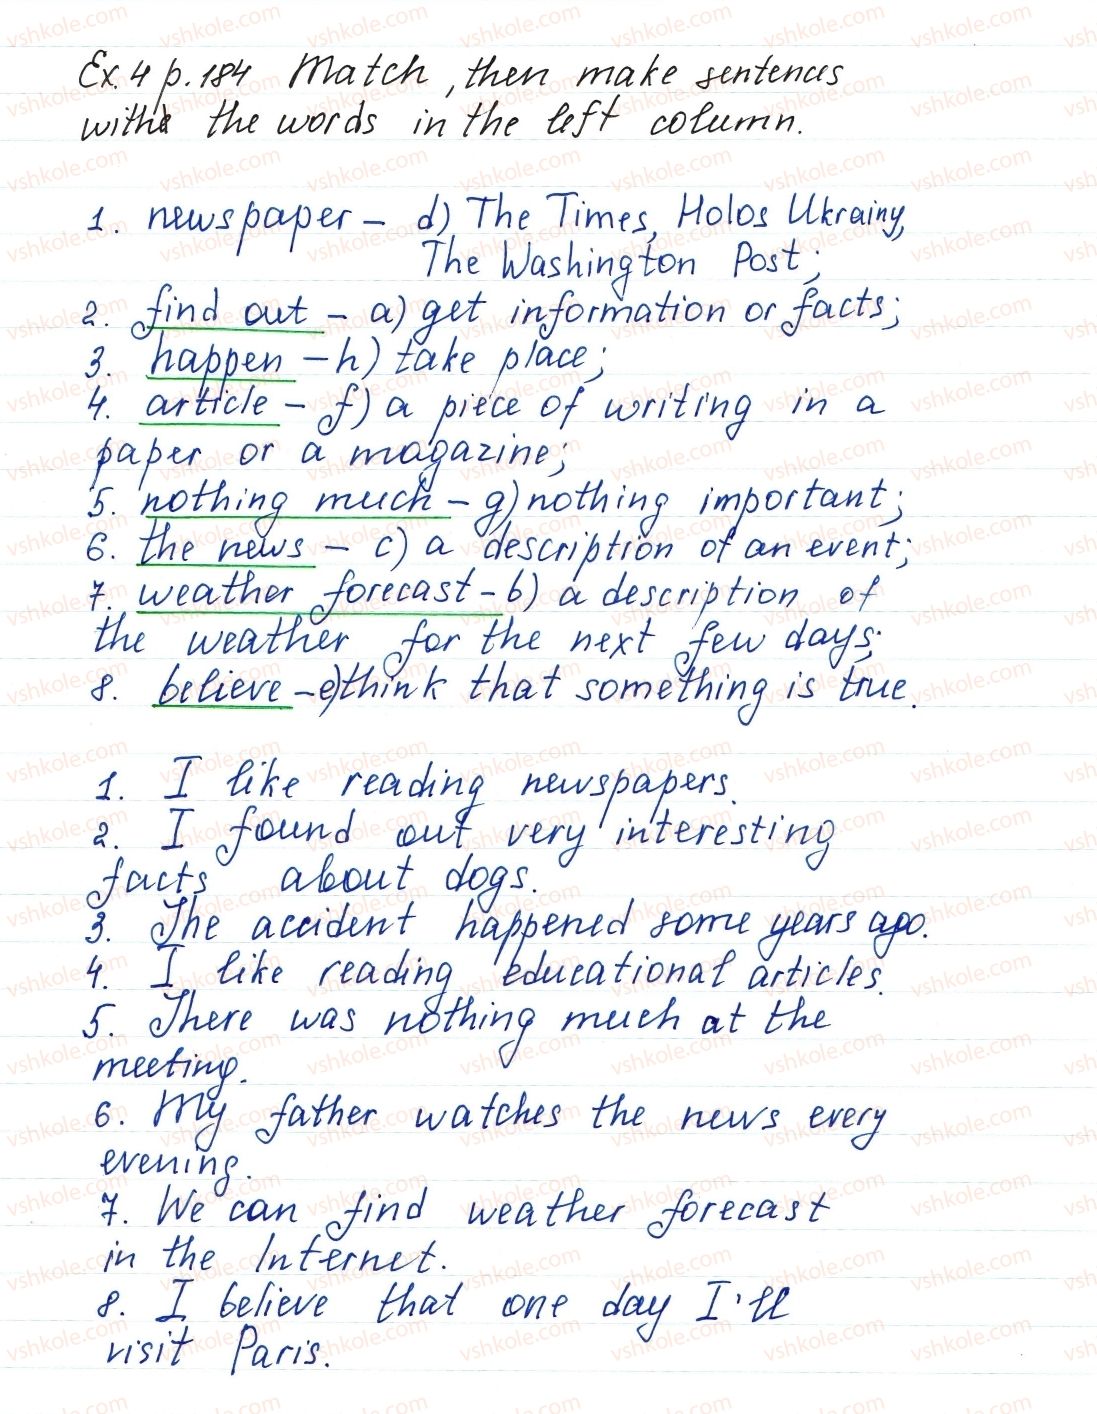 Ex. 4 p. 184 Match, then make sentences
with the words in the left column.
1. newspaper – d) The Times, Holos Ukrainy,
The Washington Post;
2. find out – a) get information or facts;
3. happen – h) take place;
4. article – f) a piece of writing in a
paper or a magazine;
5. nothing much – g) nothing important;
6. the news – c) a description of an event;
7. weather forecast – b) a description of
the weather for the next few days;
8. believe – e) think that something is true.
1. I like reading newspapers.
2. I found out very interesting
facts about dogs.
3. The accident happened some years ago.
4. I like reading educational articles.
5. There was nothing much at the
meeting.
6. My father watches the news every
evening.
7. We can find weather forecast
in the Internet.
8. I believe that one day I'll
visit Paris.
vshkole.com